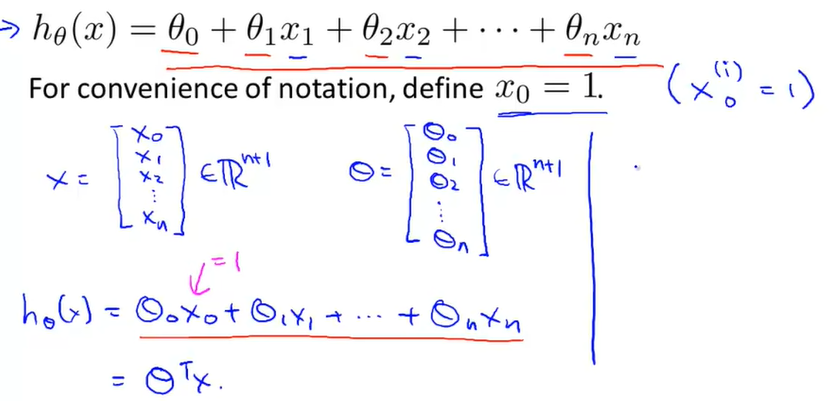 → hθ(x) = θ₀ + θ₁x₁ + θ₂x₂ + ⋯ + θₙxₙ
For convenience of notation, define x₀ = 1. (x₀⁽ⁱ⁾ = 1)
x = [x₀ x₁ x₂ ⋮ xₙ] ∈ ℝⁿ⁺¹ θ = [θ₀ θ₁ θ₂ ⋮ θₙ] ∈ ℝⁿ⁺¹
= 1
hθ(x) = θ₀x₀ + θ₁x₁ + ⋯ + θₙxₙ
= θᵀx.